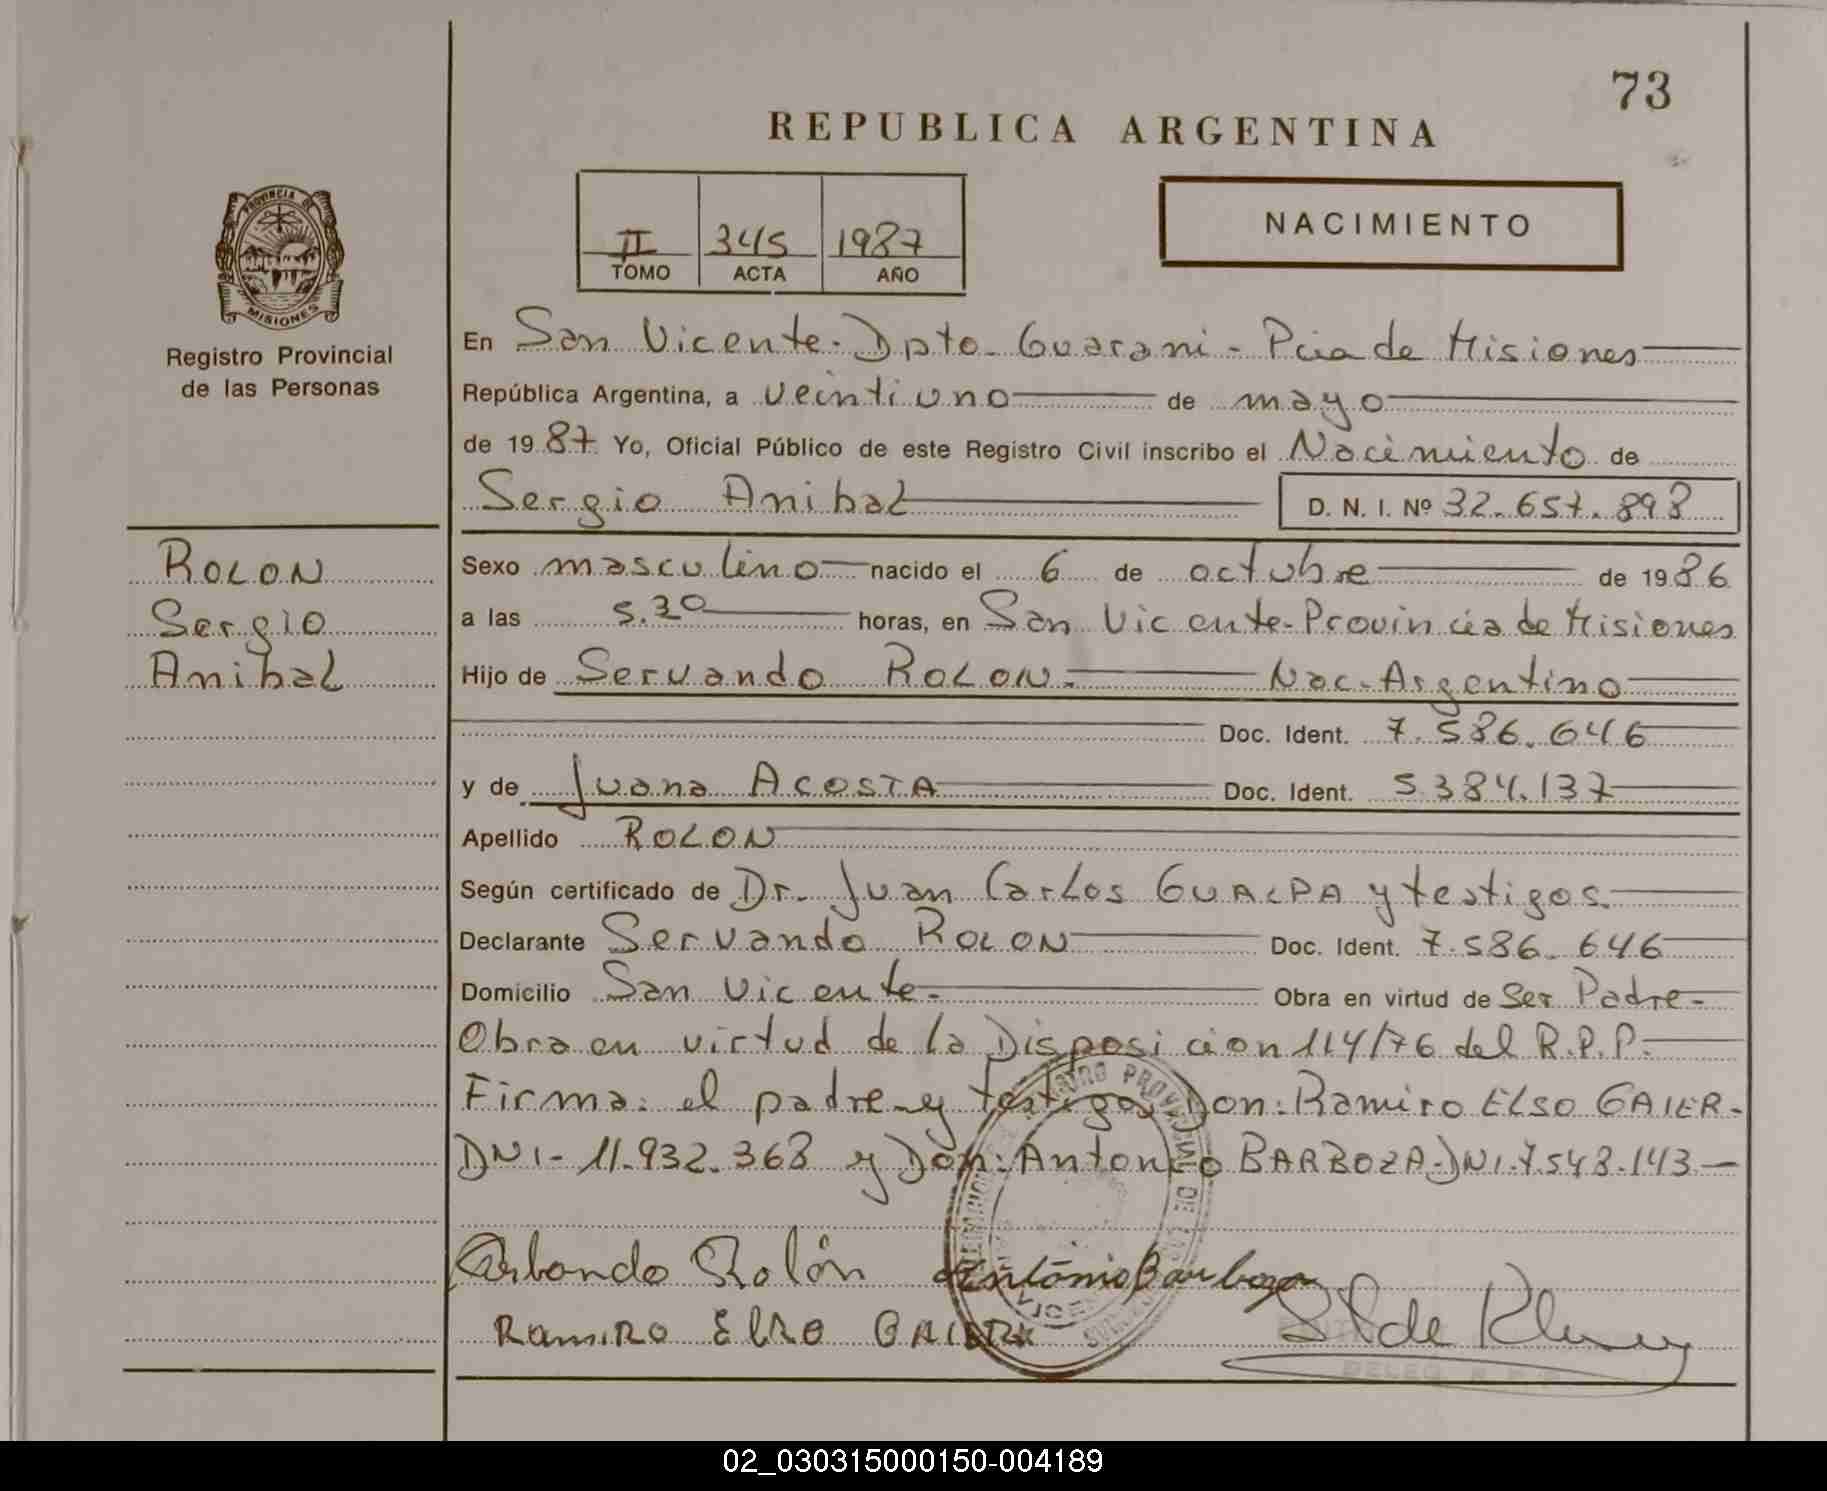 73
REPUBLICA ARGENTINA
II 345 1987
TOMO ACTA AÑO
NACIMIENTO
PROVINCIA DE
MISIONES
Registro Provincial
de las Personas
En San Vicente-Dpto-Guarani-Pcia de Misiones
República Argentina, a veintiuno de mayo
de 1987 Yo, Oficial Público de este Registro Civil inscribo el Nacimiento de
Sergio Anibal D. N. I. Nº 32.657.898
ROLON
Sergio
Anibal
Sexo masculino nacido el 6 de octubre de 1986
a las 5.30 horas, en San Vicente-Provincia de Misiones
Hijo de Servando ROLON.- Nac. Argentino
Doc. Ident. 7.586.646
y de Juana ACOSTA Doc. Ident. 5384.137
Apellido ROLON
Según certificado de Dr. Juan Carlos GUALPA y testigos.
Declarante Servando ROLON Doc. Ident. 7.586.646
Domicilio San Vicente.- Obra en virtud de Ser Padre-
Obra en virtud de la Disposicion 114/76 del R.P.P.-
Firma: el padre-y testigos Don: Ramiro ELSO GAIER-
DNI-11.932.368 y Don: Antonio BARBOZA-DNI-7.548.143-
Rolón Antonio Barboza
Ramiro Elso GAIER
02_030315000150-004189